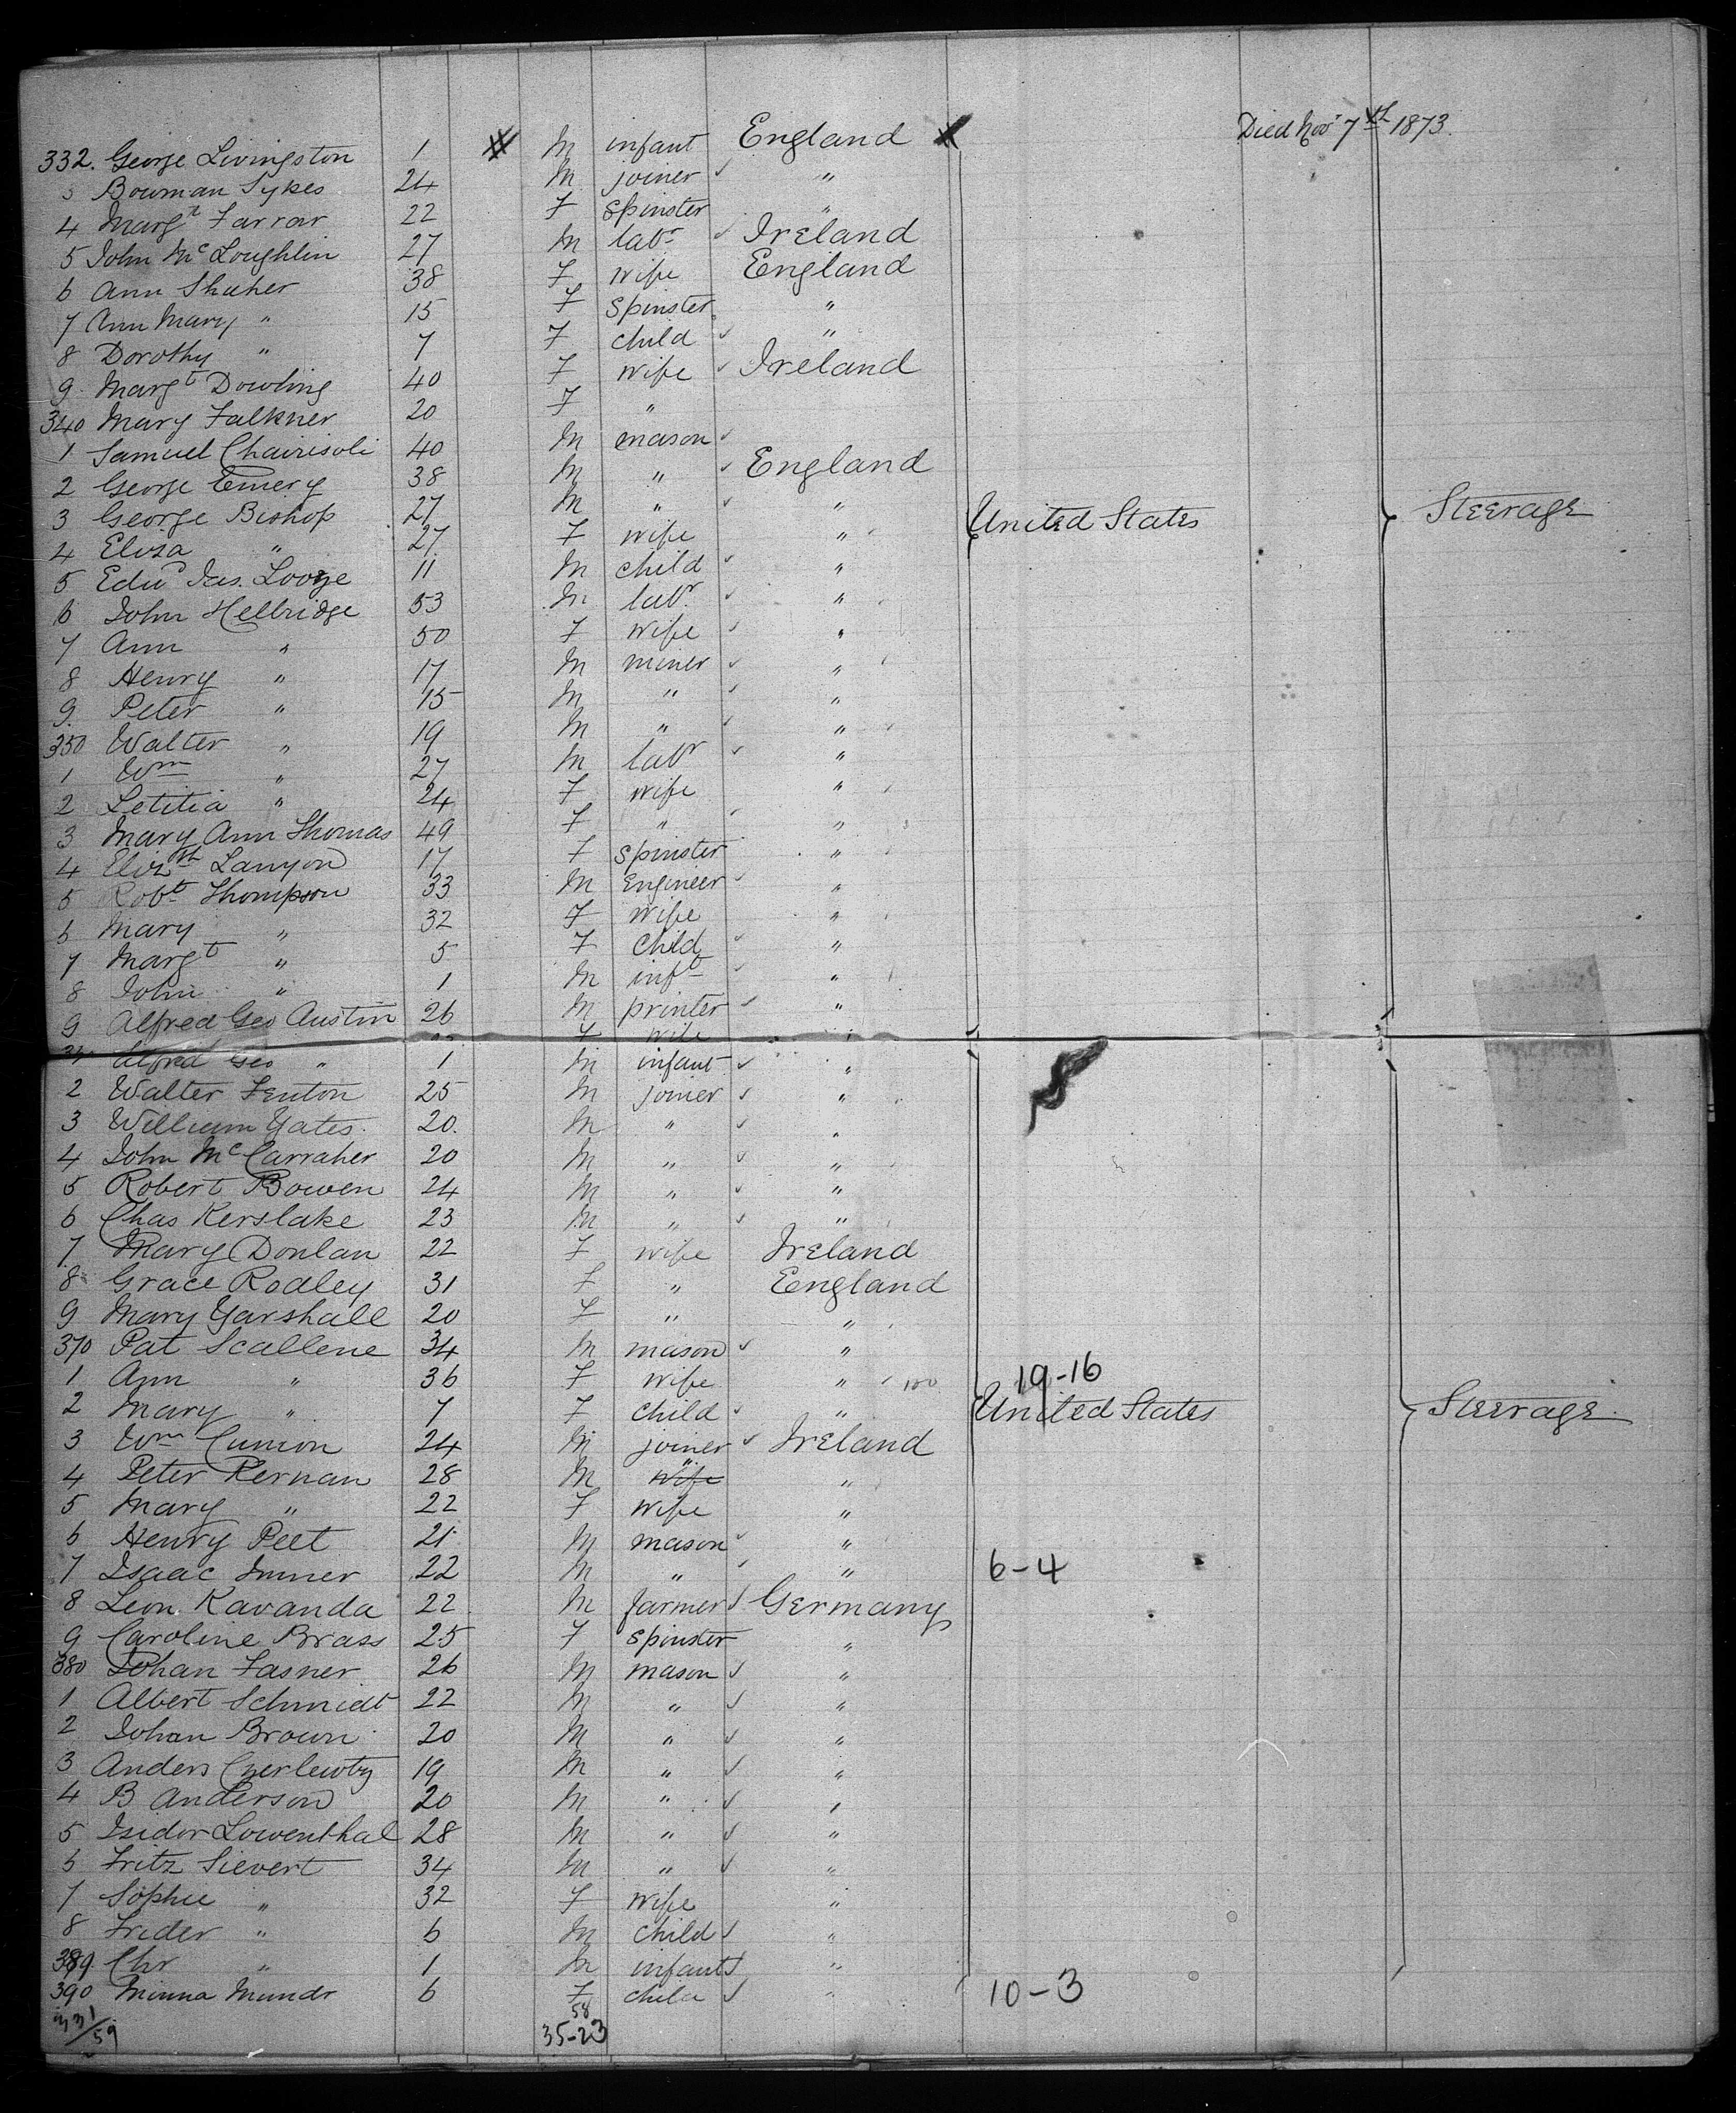 332. George Livingston 1 M infant England Died Nov 7th 1873.
3 Bowman Sykes 24 M joiner "
4 Margt Farrar 22 F Spinster "
5 John McLoughlin 27 M labr Ireland
6 Ann Shuher 38 F wife England
7 Ann Mary " 15 F Spinster "
8 Dorothy " 7 F child "
9. Margt Dowling 40 F wife Ireland
340 Mary Falkner 20 F "
1 Samuel 40 M mason
2 George Emery 38 M " England
3 George Bishop 27 M " " United States Steerage
4 Eliza " 27 F wife "
5 Edwd Jas. 11 M child "
6 John Helbridge 53 M labr "
7 Ann " 50 F wife "
8 Henry " 17 M miner "
9. Peter " 15 M " "
350 Walter " 19 M " "
1 Wm " 27 M labr "
2 Letitia " 24 F wife "
3 Mary Ann Thomas 49 F " "
4 Elizth Lanyon 17 F Spinster "
5 Robt Thompson 33 M Engineer "
6 Mary " 32 F wife "
7 Margt " 5 F child "
8 John " 1 M inft "
9 Alfred Geo Austin 26 M printer "
F wife "
Alfred Geo " 1 M infant "
2 Walter Fenton 25 M joiner "
3 William Yates. 20. M " "
4 John McCarraher 20 M " "
5 Robert Bowen 24 M " "
6 Chas Kerslake 23 M " "
7. Mary Donlan 22 F wife Ireland
8 Grace Rodley 31 F " England
9 Mary Garshall 20 F " "
370 Pat Scallene 34 M mason "
1 Ann " 36 F wife " 19-16
2 Mary " 7 F child " United States Steerage
3 Wm Cunion 24 M joiner Ireland
4 Peter Kernan 28 M " wife "
5 Mary " 22 F wife "
6 Henry Peet 21 M mason "
7 Isaac 22 M " " 6-4
8 Leon Kavanda 22 M farmer Germany
9 Caroline Brass 25 F Spinster "
380 Johan Fasner 26 M mason "
1 Albert Schmidt 22 M " "
2 Johan Brown 20 M " "
3 Anders 19 M " "
4 B Anderson 20 M " "
5 Isidor Lowenthal 28 M " "
6 Fritz Sievert 34 M " "
7 Sophie " 32 F wife "
8 Frider " 6 M child "
389. Chr " 1 M infant "
390 Minna Mundr 6 F child " 10-3
331/59 58
35-23